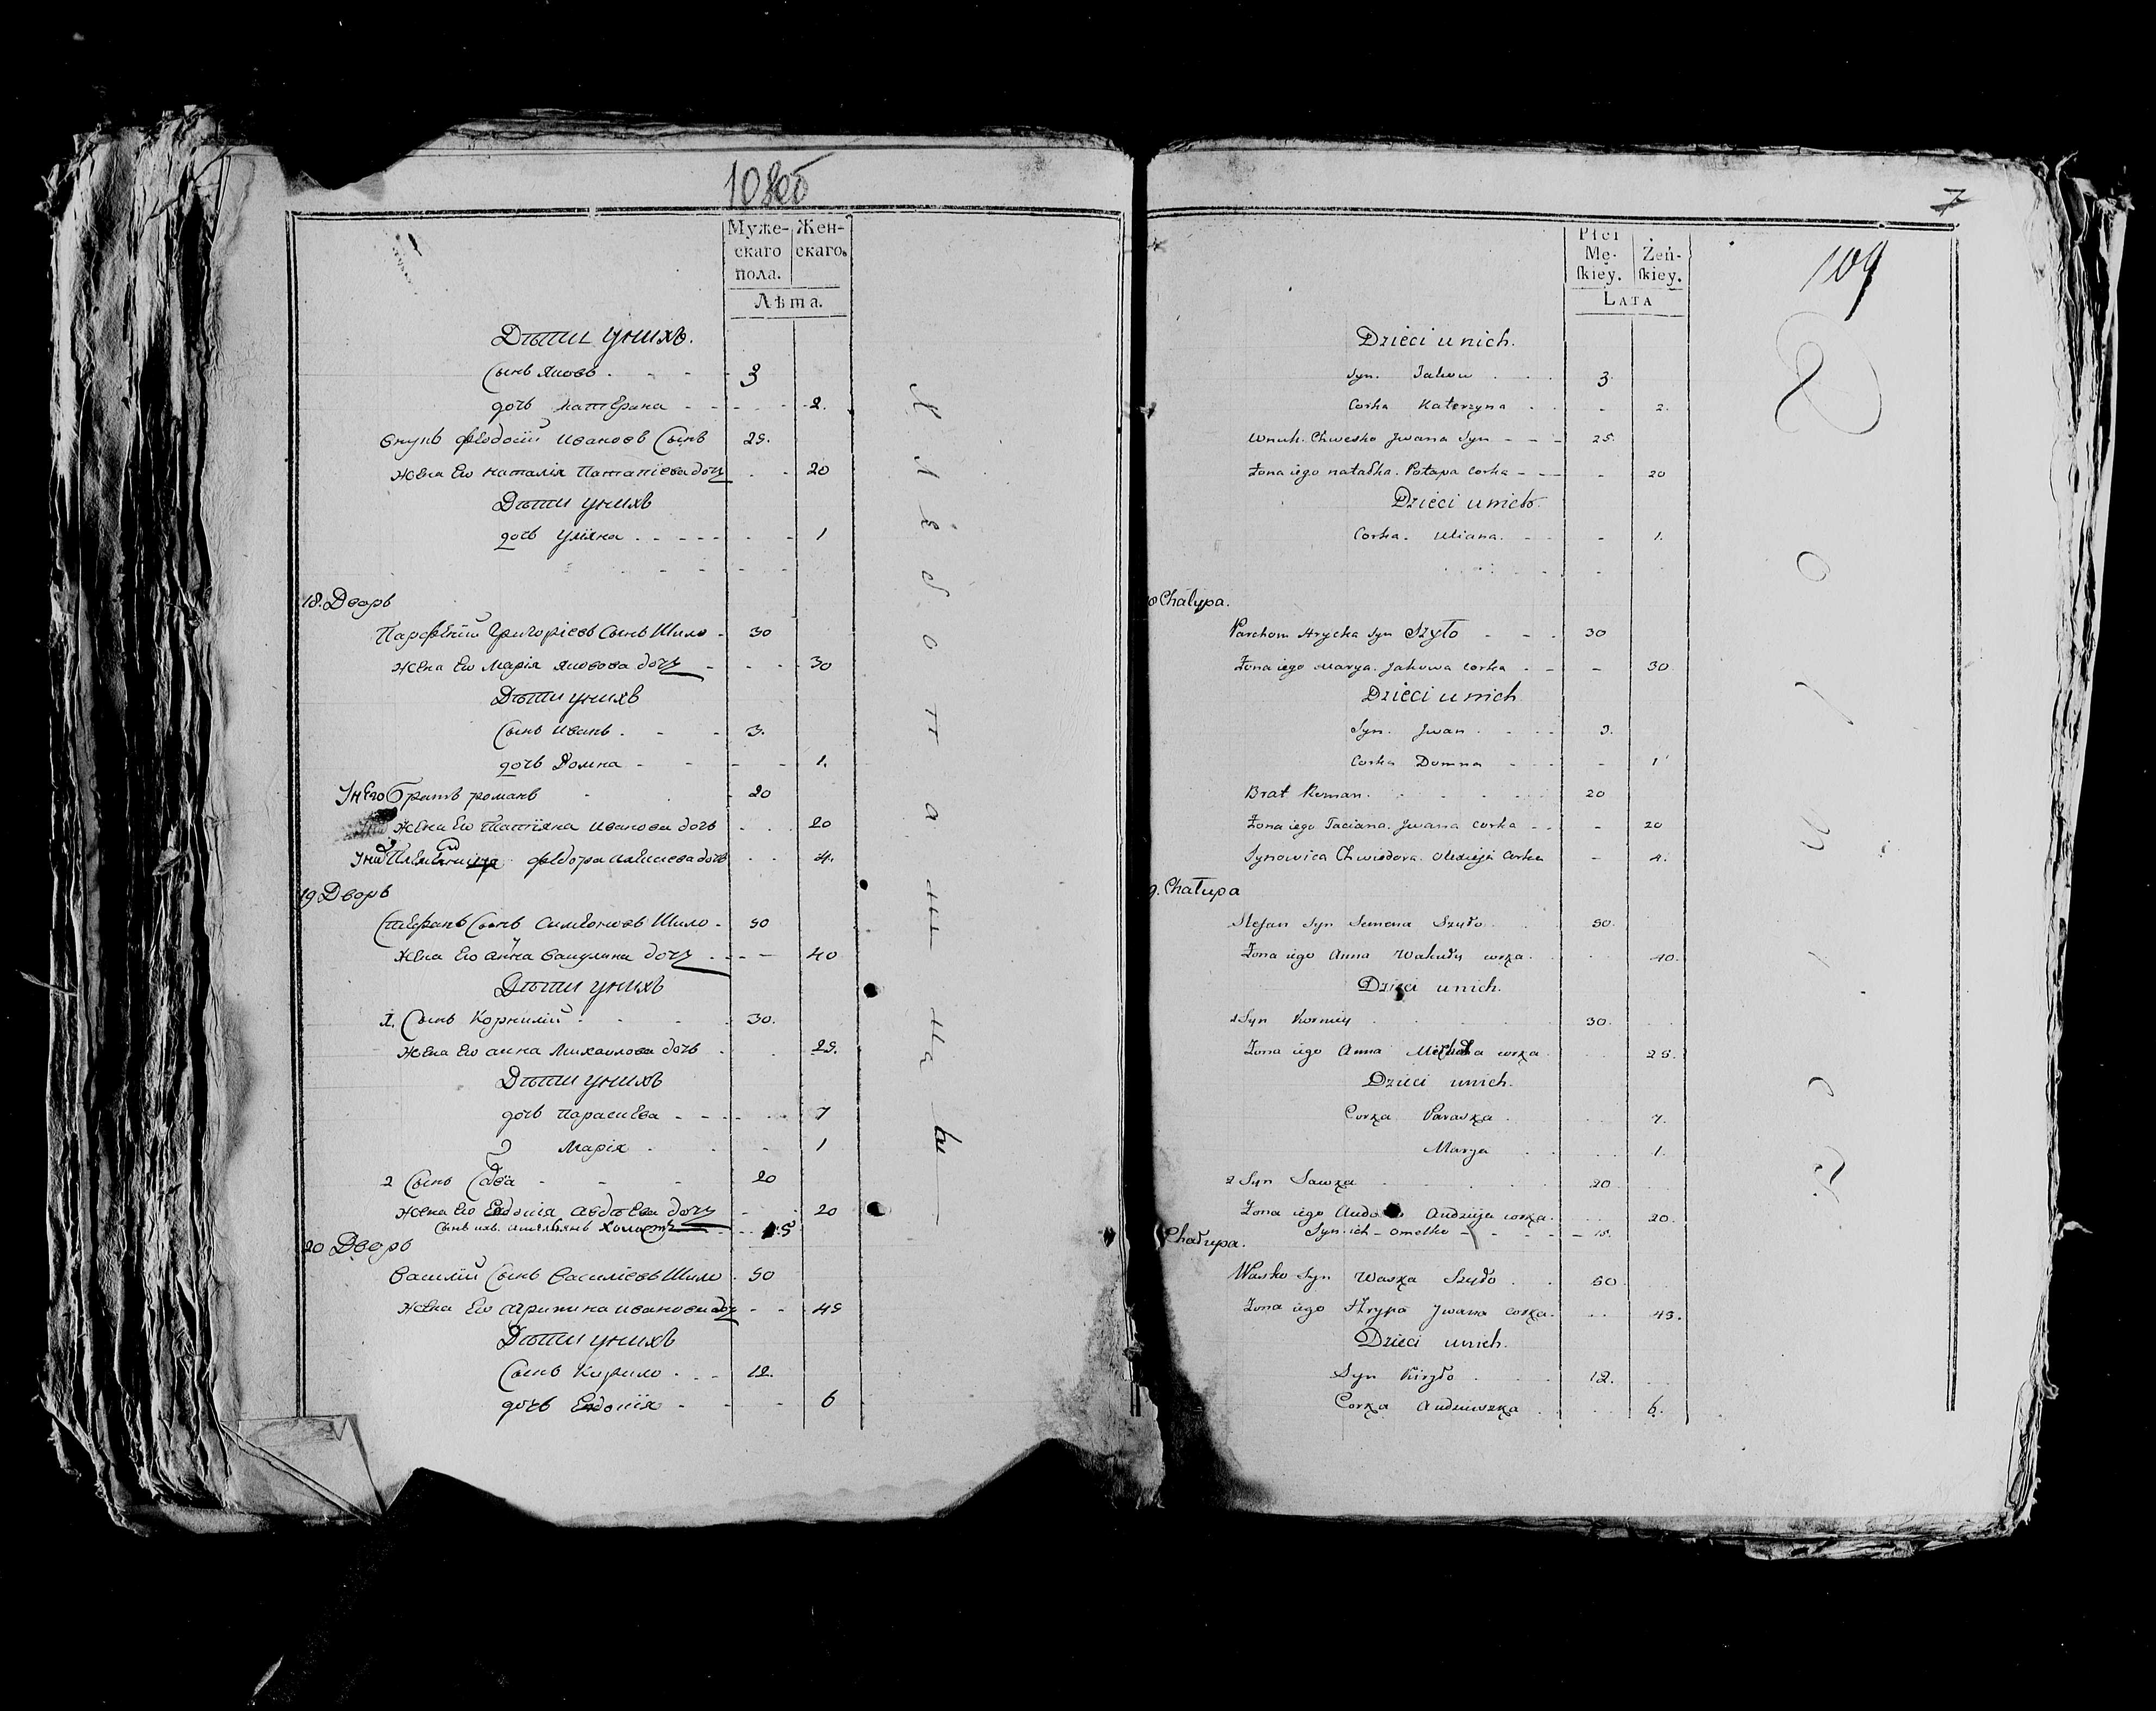 108об
Муже-
скаго
пола.
Жен-
скаго.
Лѣта.
Дѣти унихъ.
Сынъ Яковъ . - - - 3
дочь Катерина - - - - - 2.
внукъ Феодосій Ивановъ Сынъ 25.
жена Ево Наталія Потапіева дочь - - 20
Дѣти унихъ
дочь Уліяна . - - - - - - 1
18. Дворъ
Парфеній Григоріевъ Сынъ Шило - 30
жена Ево Марія Яковова дочь - - - - 30
Дѣти унихъ
Сынъ Иванъ . - - 3.
дочь Домна - - - - 1.
Унего братъ романъ - - 20
жена Ево Татіяна Иванова дочь - . . 20
Федора Алексиева дочь . . 4.
19 Дворъ
Стефанъ Сынъ Симеоновъ Шило - 50
жена Ево Анна Вакулина дочь . - - - 40
Дѣти унихъ
1. Сынъ Корнилій - - - 30.
жена Ево анна Михаилова дочь . . 25.
Дѣти унихъ
дочь Параскева - - - - . . 7
Марія . - - - 1
2 Сынъ Сава - - - 20
жена Ево Евдокія Авдѣева дочь - . 20
Сынъ ихъ Омелянъ Холостъ - - - 15
20 Дворъ
Василій Сынъ Василіевъ Шило . 50
жена Ево Агрипина Иванова дочь - - 45
Дѣти унихъ
Сынъ Кирило . . - 12.
дочь Евдокія - - - 6
Хлѣбопашцы
7
109
Płci
Mę-
ſkiey.
Żeń-
ſkiey.
LATA
Dzieci u nich.
Syn. Jakow . . . 3.
Corka Katerzyna . . - 2.
Wnuk. Chwesko Jwana Syn - - - 25.
Żona iego nataska. Potapa corka - - - - 20
Dzieci u nich.
Corka. Uliana. - - - 1.
Chałupa.
Parchom Hrycka Syn Szyło - - . 30
Żona iego Marya. Jakowa corka - - - 30.
Dzieci u nich
Syn. Jwan . . - - 3.
Corka Domna - - - - 1
Brat Roman. - - - - - 20
Żona iego Taciana. Jwana corka - - - 20
Synowica Chwiedora. Olexieja Corka - 4.
9. Chałupa
Stefan Syn Semena Szyło. . . 50.
Żona iego Anna Wakuły corka. . . 40.
Dzieci u nich.
1 Syn Korniey . . . 30.
Żona iego Anna Michała corka. . . 25.
Dzieci u nich.
Corka Paraska . . . 7.
Marya . . . 1.
2 Syn Sawka . . . 20
Żona iego Audzieja corka. . . 20.
Syn ich - Omelko - - - - 15.
Chałupa.
Wasko Syn Waska Szyło . . 50.
Żona iego Hrypa Jwana corka. . . 45.
Dzieci u nich.
Syn Kiryło . . . 12.
Corka Audziuszka . . . 6.